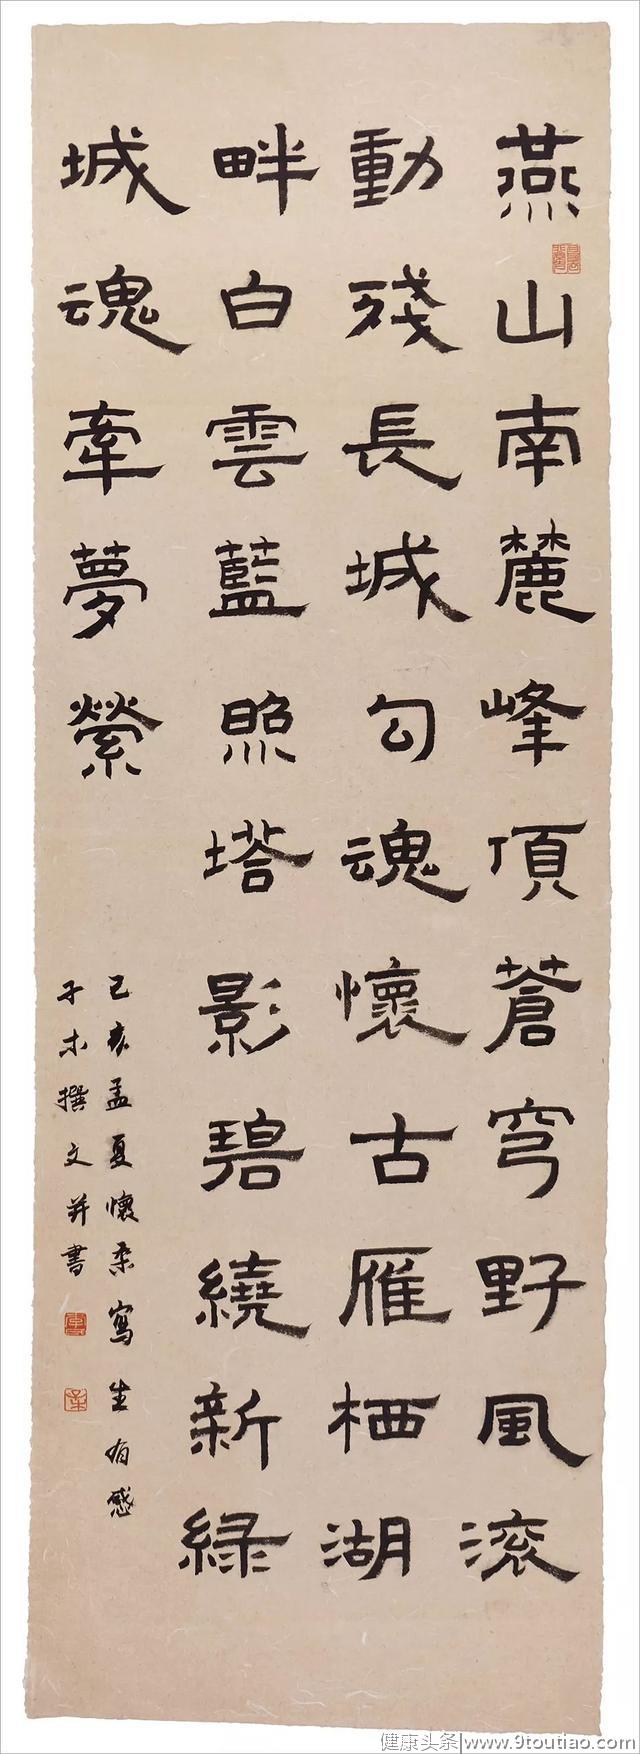 燕山南麓峰頂蒼穹野風滚
動殘長城勾魂懷古雁栖湖
畔白雲藍照塔影碧繞新緑
城魂牽夢縈
己亥孟夏懷柔寫生有感
子木撰文并書
健康头条 www.9toutiao.com